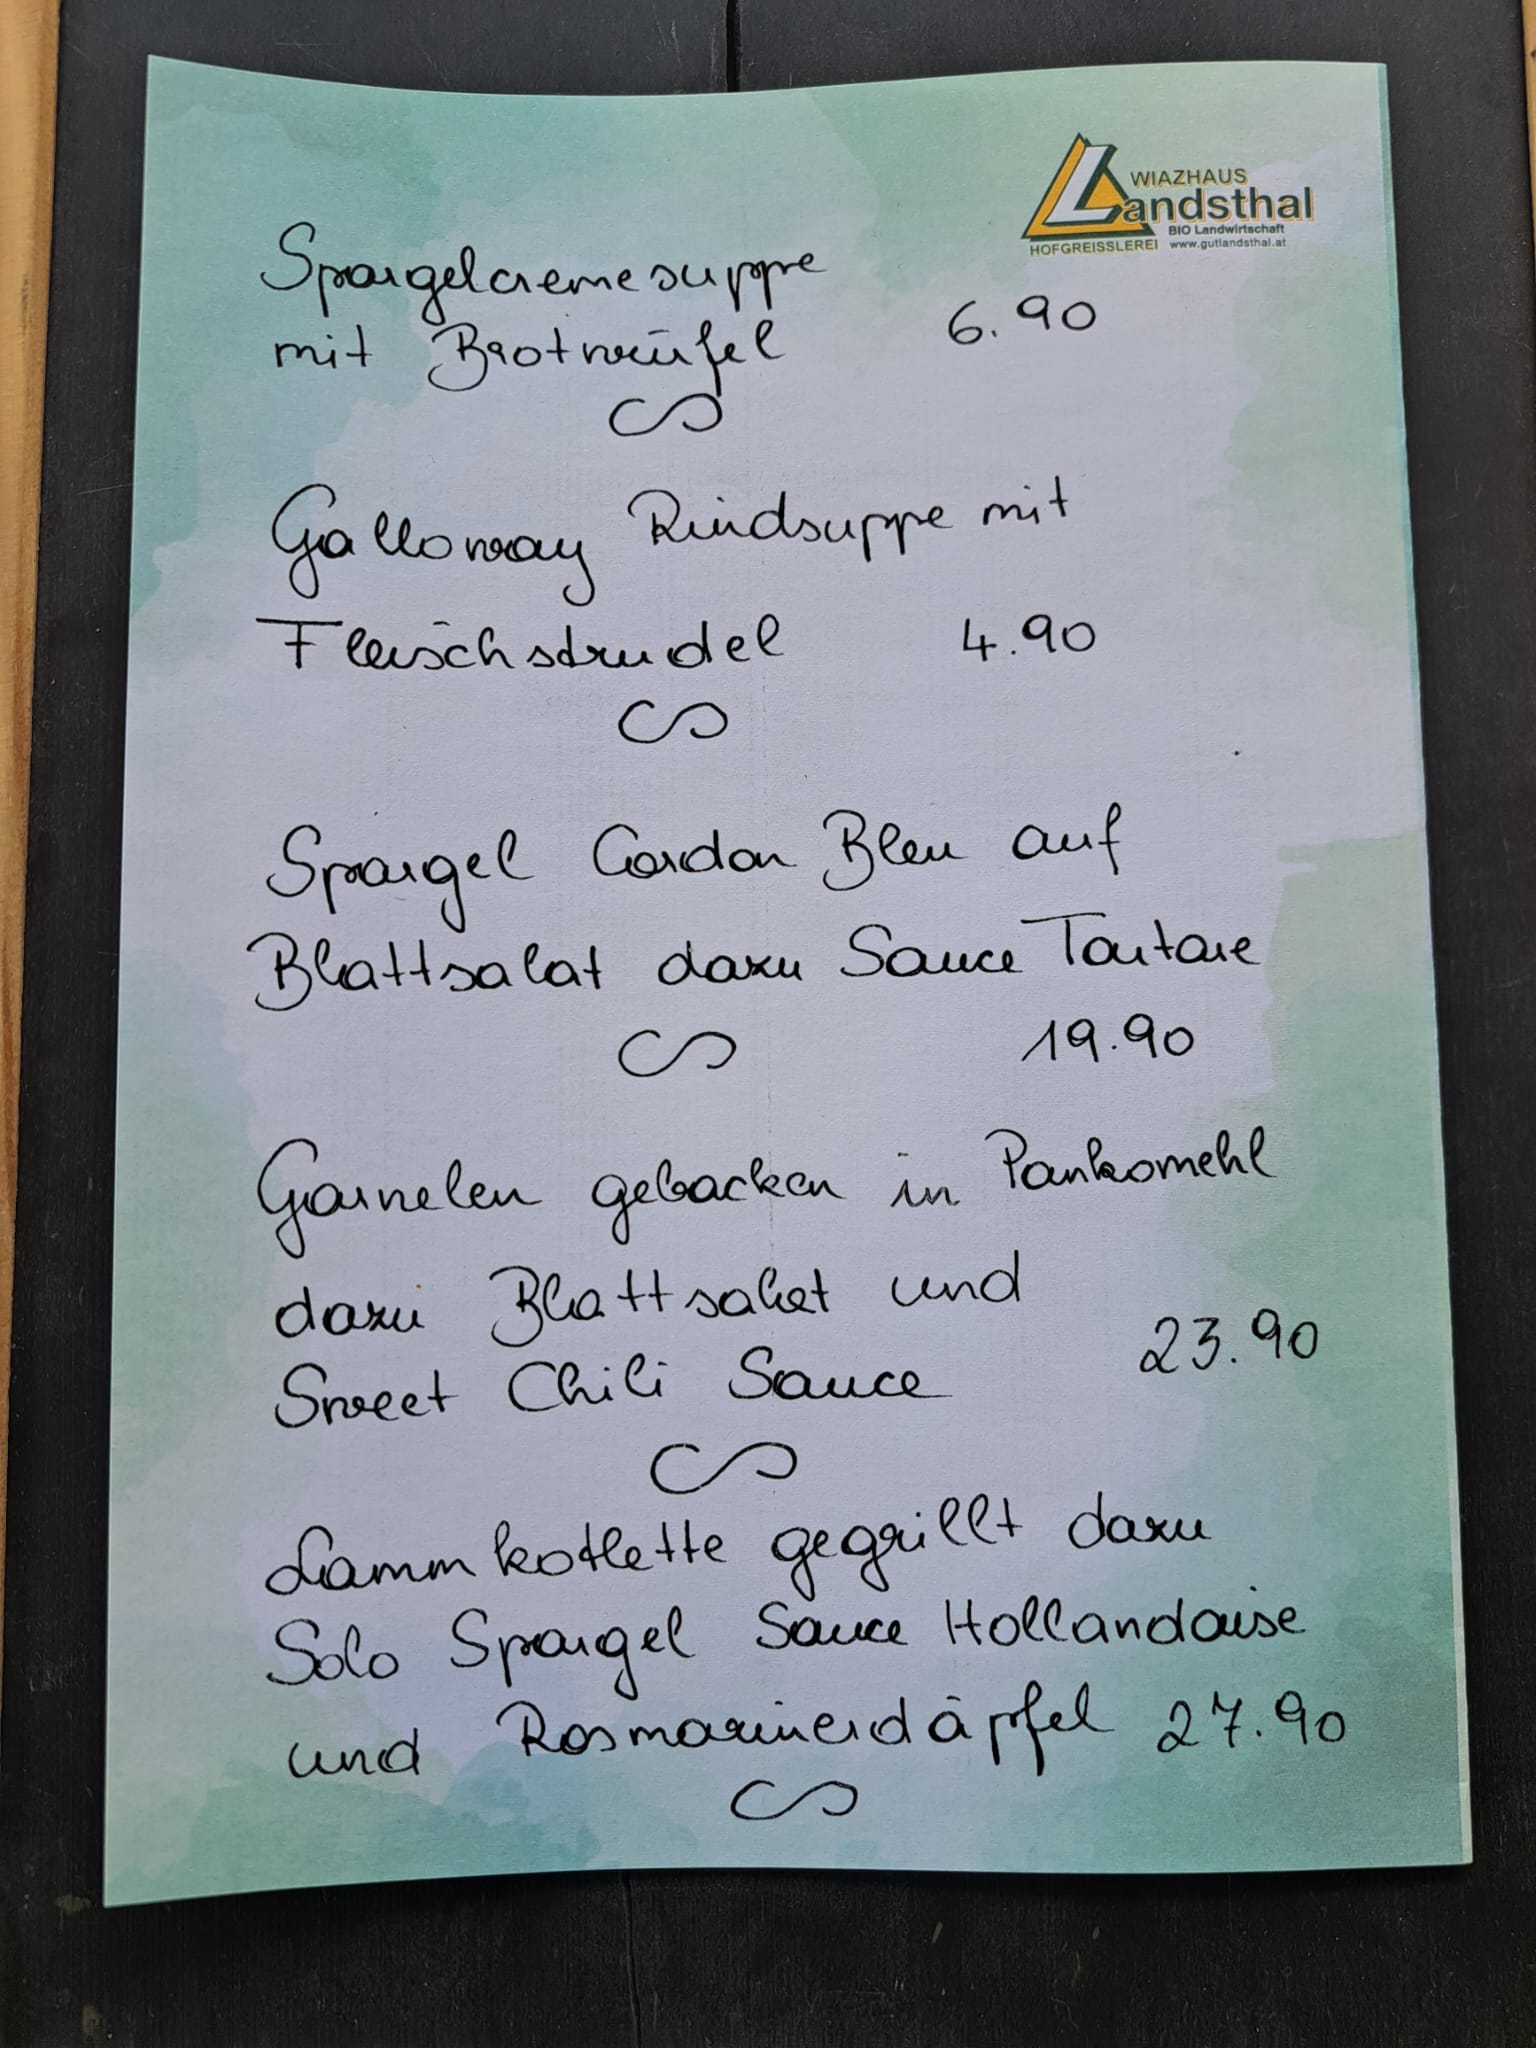 WIAZHAUS
Landsthal
BIO Landwirtschaft
HOFGREISSLEREI www.gutlandsthal.at
Spargelcremesuppe
mit Brotwürfel 6.90
Galloway Rindsuppe mit
Fleischstrudel 4.90
Spargel Cordon Bleu auf
Blattsalat dazu Sauce Tartare
19.90
Garnelen gebacken in Pankomehl
dazu Blattsalat und
Sweet Chili Sauce 23.90
Lammkotlette gegrillt dazu
Solo Spargel Sauce Hollandaise
und Rosmarinerdäpfel 27.90